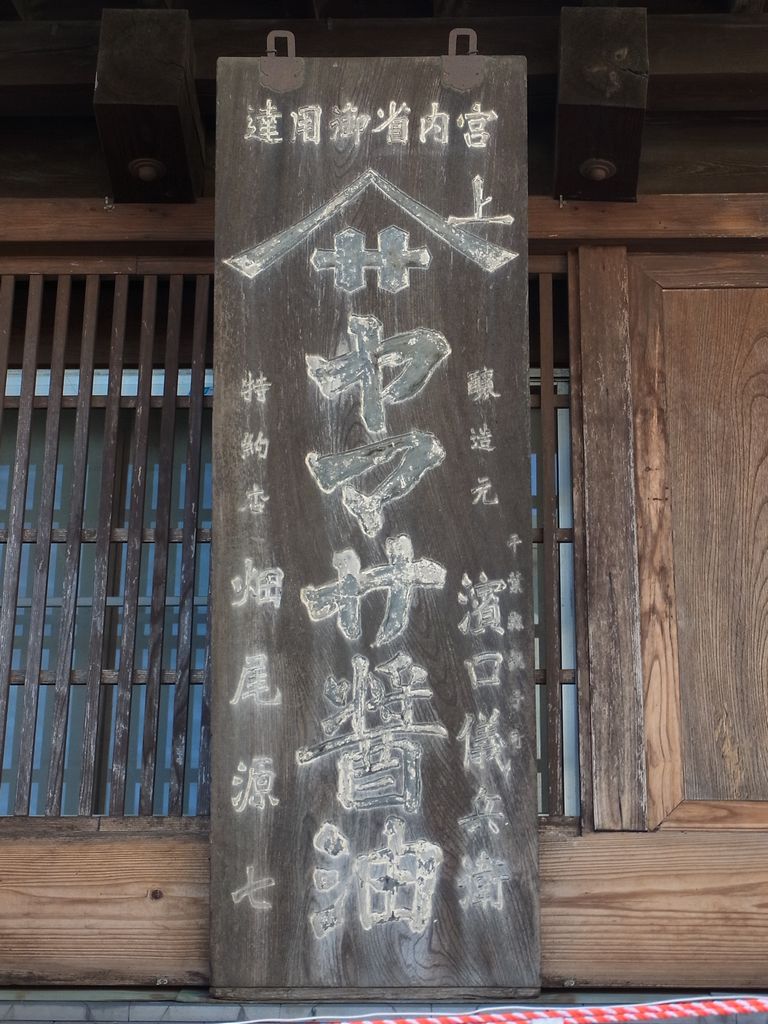 宮内省御用達
上
サ
ヤマサ醤油
醸造元
千葉縣銚子町
濱口儀兵衛
特約店
畑尾源七